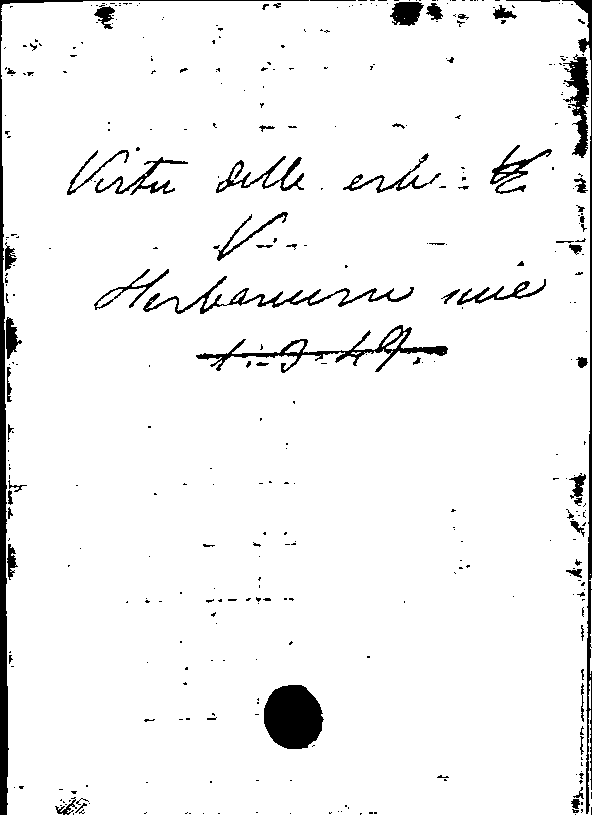 Virtu delle erbe
V.
Herbarium
1.9.49.